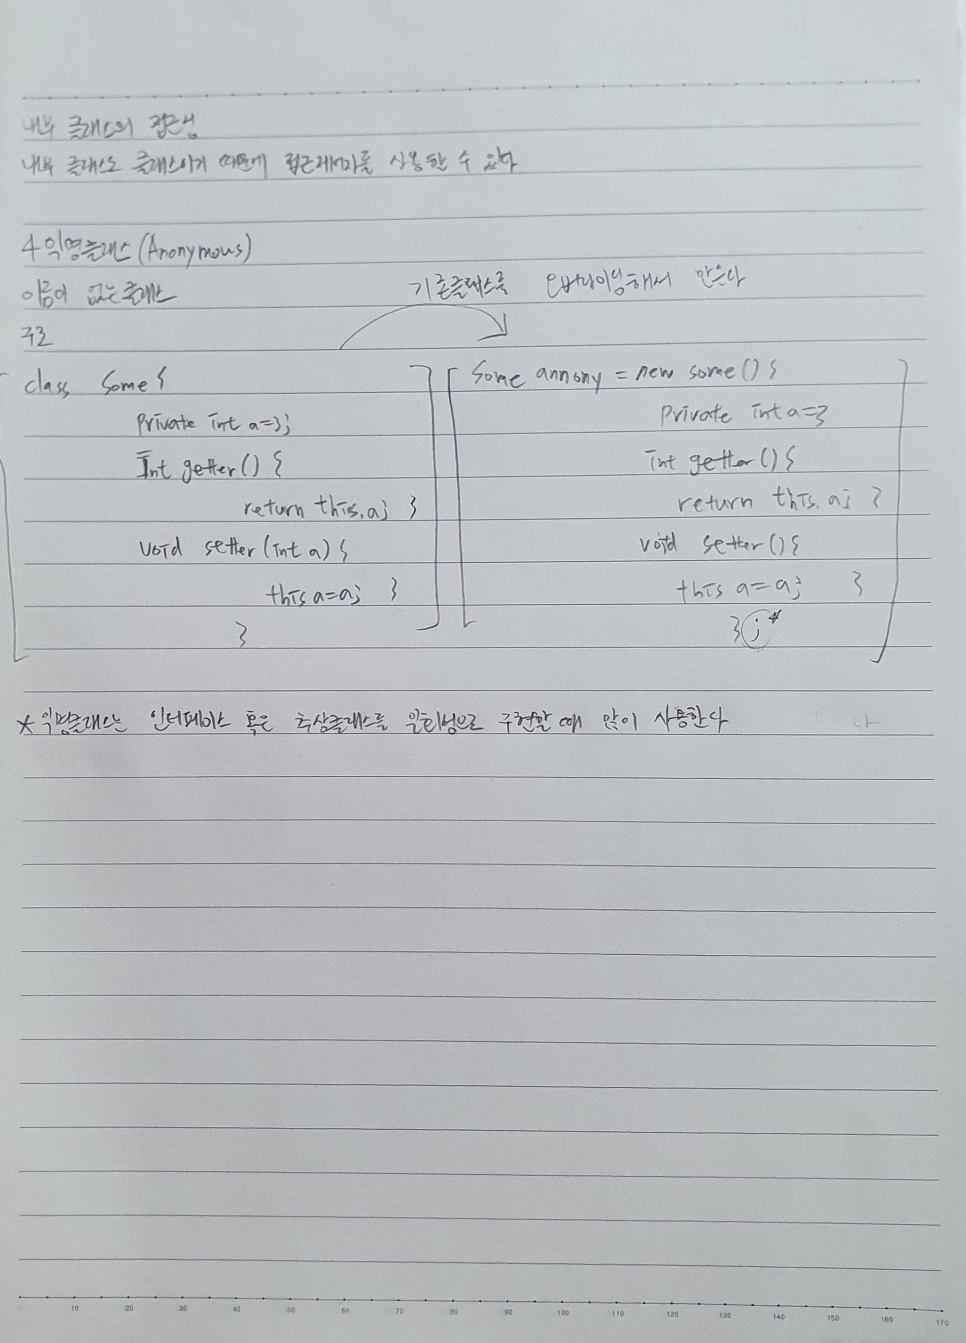 내부 클래스의 접근성
내부 클래스도 클래스이기 때문에 접근제어자를 사용할 수 있다
4 익명클래스 (Anonymous)
이름이 없는 클래스
기존클래스를 오버라이딩해서 만든다
구조
class Some {
private int a=3;
Int getter() {
return this.a; }
void setter(int a) {
this a=a; }
}
Some annony = new some() {
private int a=3
int getter() {
return this.a; }
void setter() {
this a=a; }
};*
*익명클래스는 인터페이스 혹은 추상클래스를 일회성으로 구현할 때 많이 사용한다
10 20 30 40 50 60 70 80 90 100 110 120 130 140 150 160 170